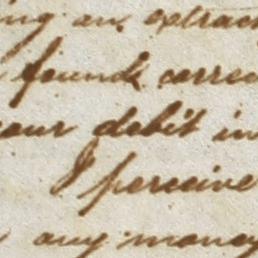 ing an extract
found correc
your debit in
I perceive
any money